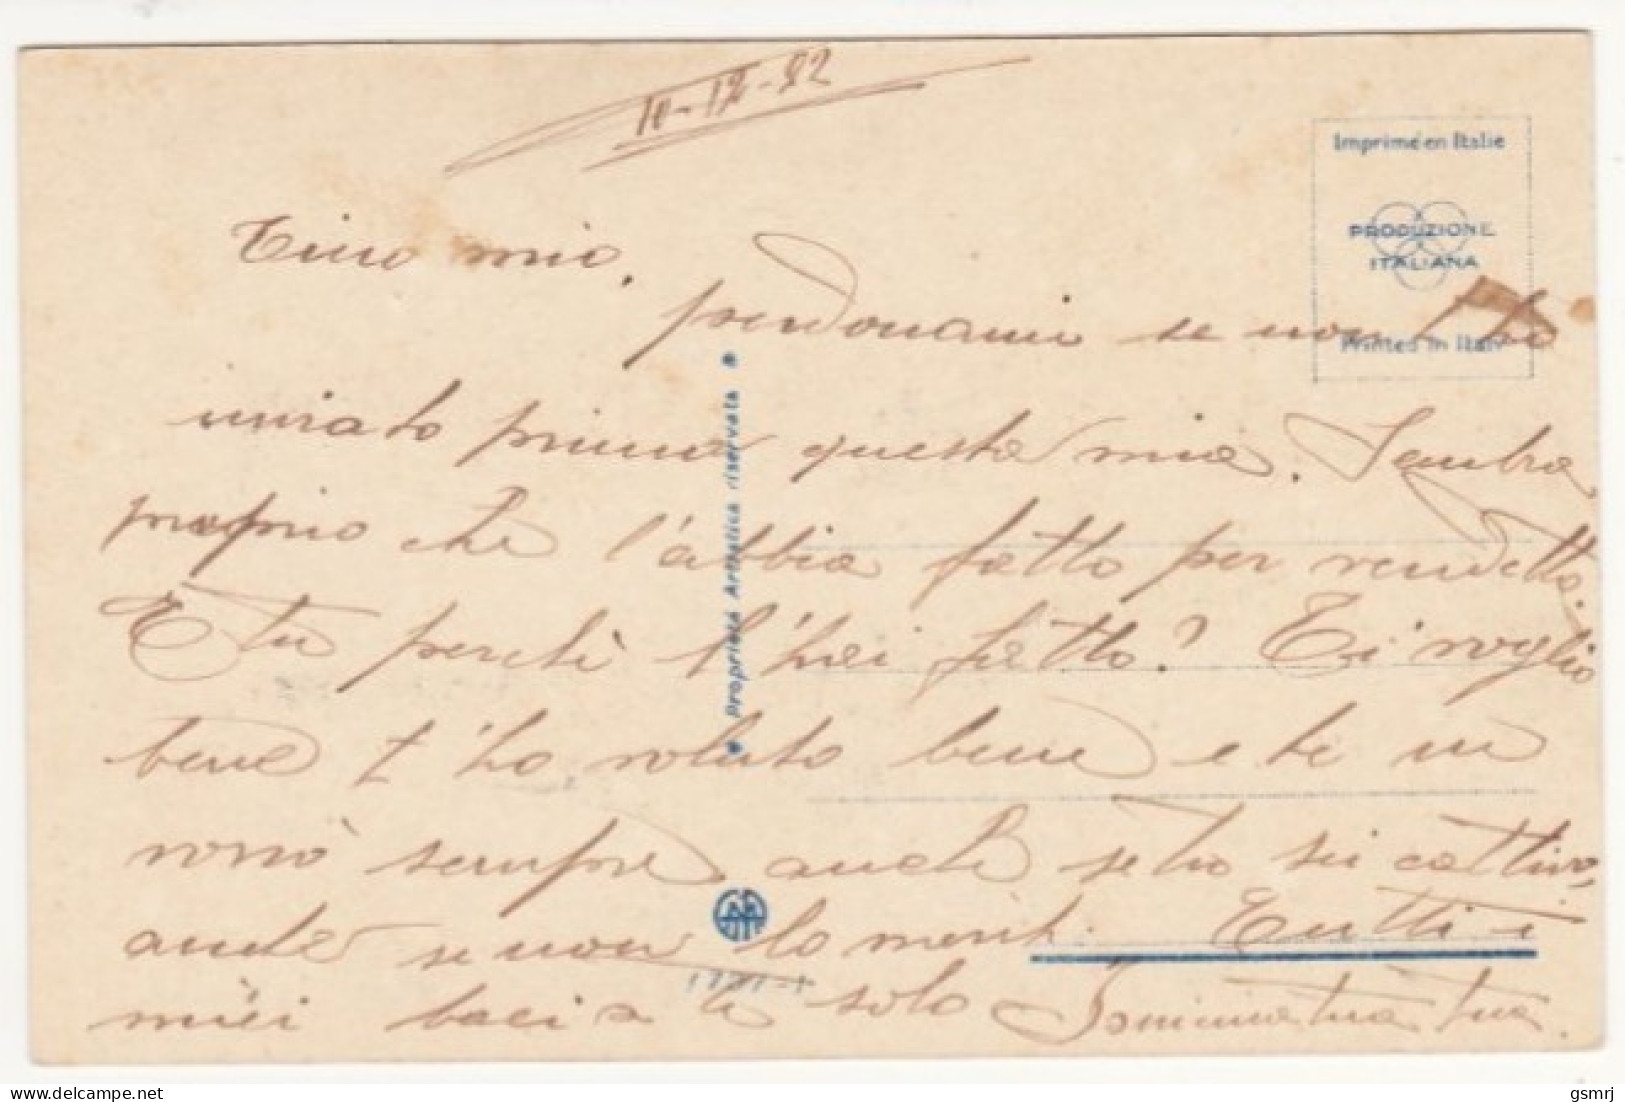 Tino mio,
perdonami se non t'ho
inviato prima questa mia. Sembra
proprio che l'abbia fatto per vendetta.
E tu perchè l'hai fatto? Ti voglio
bene t'ho voluto bene e te ne
vorrò sempre anche se tu sei cattivo,
anche se non lo meriti. Tutti i
miei baci a te solo
tua tua.
Imprimé en Italie
PRODUZIONE
ITALIANA
Printed in Italy
Proprietà Artistica riservata
delcampe.net
gsmrj